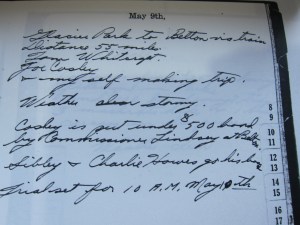 May 9th.
Park to Belton via train
Distance 55 miles.
For Cooley
& myself making trip.
Weather clear stormy.
Cooley is put under $500 bond
by Commissioner Lindsay at
Sibley & Charlie Howes go his
Trial set for 10 A.M. May 10th
8
9
10
11
12
13
14
15
16
17